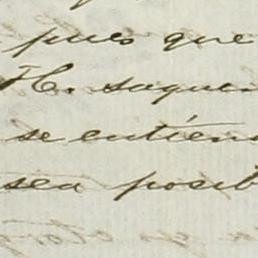 pues que
H. saquen
se entiend
sea posib